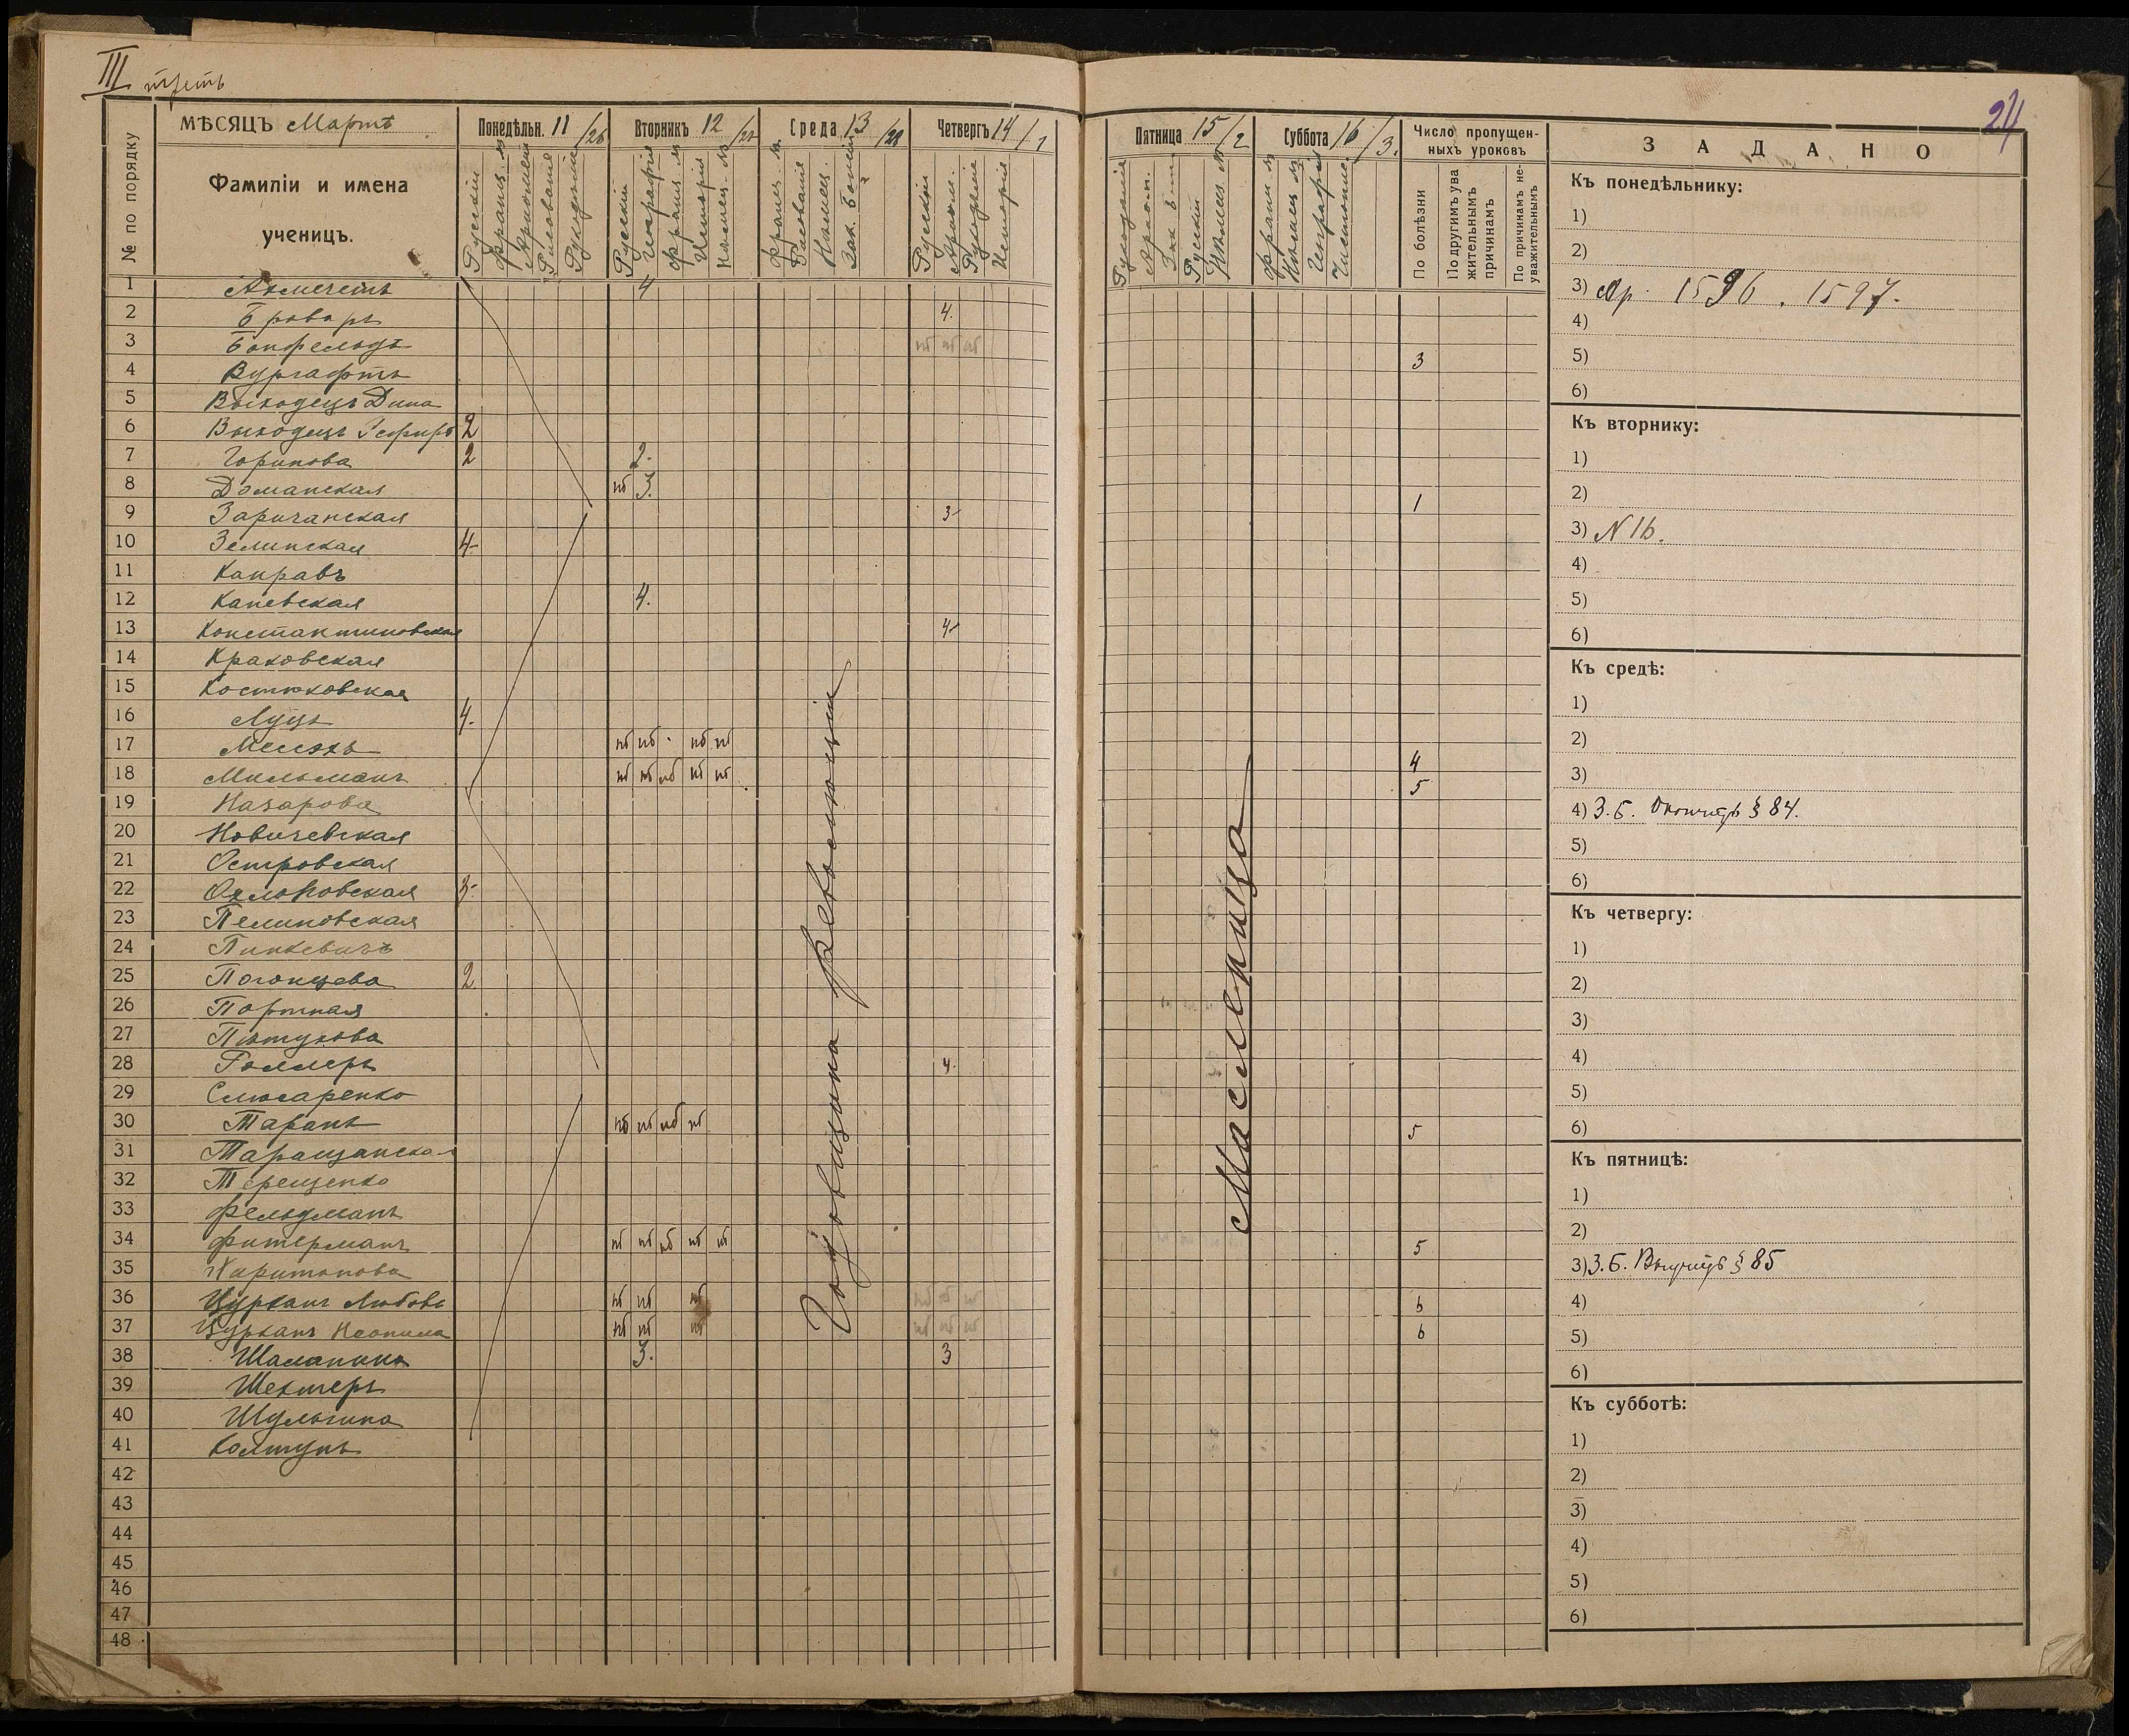 III треть
24
МѢСЯЦЪ Мартъ
Понедѣльн. 11/26
Вторникъ 12
Среда 13/28
Четвергъ 14/1
Пятница 15/2
Суббота 16/3.
Число пропущен-
ныхъ уроковъ
ЗАДАНО
№ по порядку
Фамиліи и имена
ученицъ.
Русскій
Рисованіе
Русскій
Географія
Исторія
Рисованіе
Русскій
Исторія
Русскій
Географія
По болѣзни
По другимъ ува
жительнымъ
причинамъ
По причинамъ не-
уважительнымъ
1 Ахмететъ 4
2 Броваръ 4.
3 Бонфельдъ нб нб нб 3
4 Вургафтъ
5 Выходецъ Дина
6 Выходецъ 2
7 Горинова 2 2.
8 Доманская нб 3. 1
9 Заричанская 3-
10 Зелинская 4-
11 Канравъ
12 Каневская 4.
13 Константиновская 4-
14 Краковская
15 Костюковская
16 Луцъ 4.
17 нб нб нб нб 4
18 Мильманъ нб нб нб нб нб 5
19 Назарова
20 Новичевская
21 Островская
22 Охлоновская 3-
23 Пелиновская
24 Пинкевичъ
25 Погонцева 2
26 Портная
27 Пѣтухова
28 Роллеръ 4.
29 Слюсаренко
30 Таранъ нб нб нб нб 5
31 Таращанская
32 Терещенко
33 Фельдманъ
34 Фитерманъ нб нб нб нб нб 5
35 Харитонова
36 Цурканъ Любовь нб нб нб нб нб нб 6
37 Цурканъ нб нб нб нб нб нб 6
38 Шаланкина 3. 3
39 Шехтеръ
40 Шульгина
41 Колтунъ
42
43
44
45
46
47
48
Годовщина революціи
Масленица
Къ понедѣльнику:
1)
2)
3) Ар. 1596. 1597.
4)
5)
6)
Къ вторнику:
1)
2)
3) N 16.
4)
5)
6)
Къ средѣ:
1)
2)
3)
4) З.Б. § 84.
5)
6)
Къ четвергу:
1)
2)
3)
4)
5)
6)
Къ пятницѣ:
1)
2)
3) З.Б. Выучить § 85
4)
5)
6)
Къ субботѣ:
1)
2)
3)
4)
5)
6)